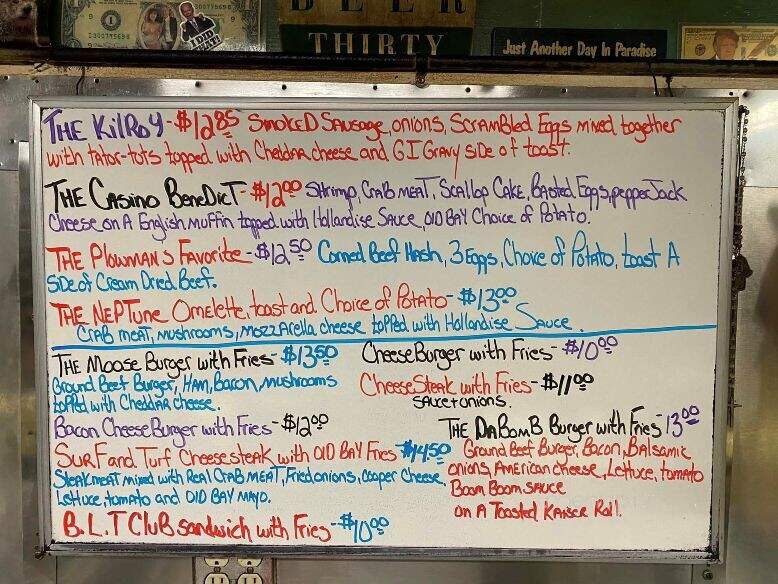 BEER
THIRTY
Just Another Day In Paradise
THE KilROY - $12.85 SmOKED SAUSAge, onions, SCRAMBled Eggs mixed together
with tator-tots topped with Cheddar cheese and G I GRAVY SIDe of toast.
THE CASino BeneDicT - $12.00 SHrimp, CRAB MEAT, SCAllop CAKE, BASted Eggs, pepper Jack
Cheese on A English muffin topped with Hollandise SAUCE, OlD BAY Choice of Potato.
THE Plowman's Favorite - $12.50 Corned Beef Hash, 3 Eggs, Choice of Potato, toast A
SiDe of Cream Dried Beef.
THE NEPTune Omelette, toast and Choice of Potato - $13.00
CRAB meat, mushrooms, mozzArella cheese topped with Hollandise Sauce.
THE Moose Burger with Fries - $13.50
Ground Beef Burger, HAm, BAcon, mushrooms
topped with CheddAR cheese.
Bacon CheeseBurger with Fries - $12.00
SuRF and TurF Cheesesteak with OlD BAY Fries $14.50
Steakmeat mixed with ReAl CRAB MEAT, Fried onions, cooper Cheese,
Lettuce, tomato and OlD BAY mayo.
B.L.T Club sandwich with Fries - $10.00
CheeseBurger with Fries - $10.00
CheeseSteak with Fries - $11.00
SAuce + onions.
THE DABomB Burger with Fries 13.00
Ground Beef Burger, Bacon, Balsamic
onions, American cheese, Lettuce, tomato
Boom Boom SAuce
on A Toasted Kaiser Roll.